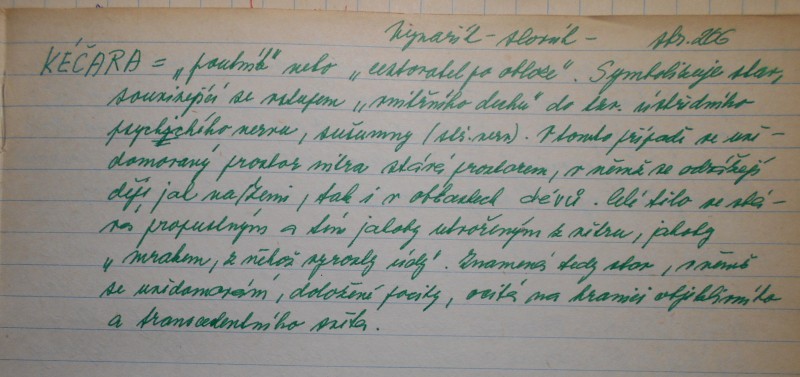 Minařík - slovník - str. 206
KÉČARA = „poutník" nebo „cestovatel po obloze". Symbolizuje stav,
související se vstupem „vnitřního dechu" do tzv. ústředního
psychického nervu, sušumny (stř. nerv). V tomto případě se uvě-
domovaný prostor nitra stává prostorem, v němž se odrážejí
děje jak na Zemi, tak i v oblastech dévů. Celé tělo se stá-
vá propustným a tím jakoby utvořeným z větru, jakoby
„mrakem, z něhož vyrostly údy". Znamená tedy stav, v němž
se uvědomování, doložené pocity, ocitá na hranici objektivního
a transcedentního světa.